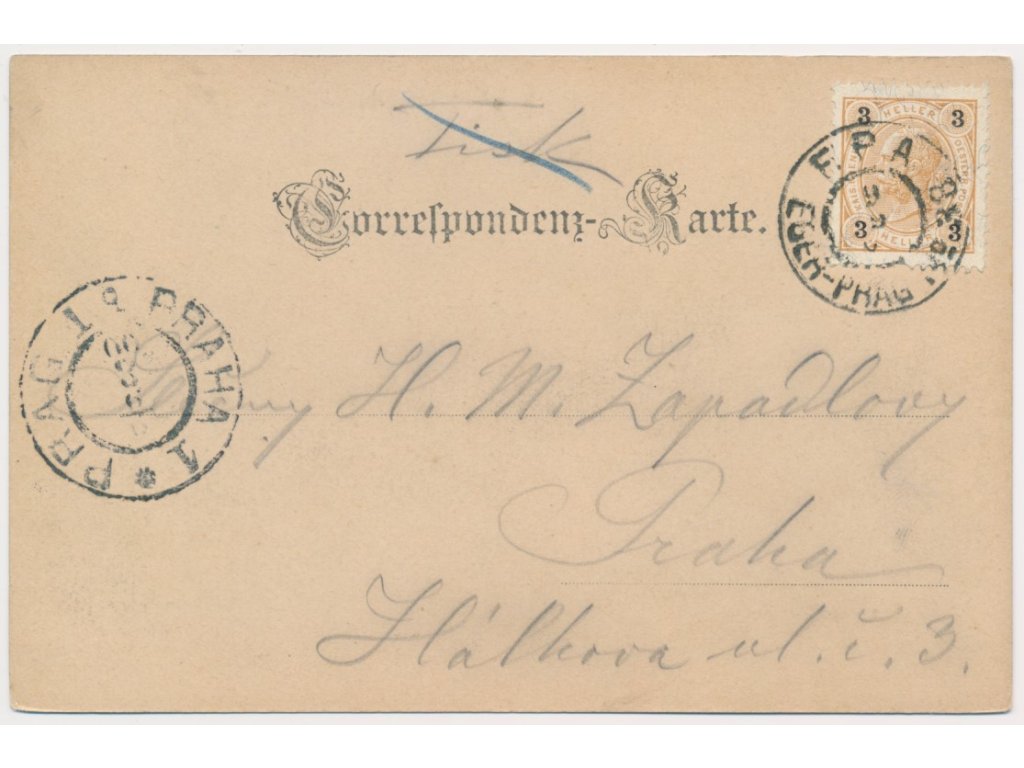 Tisk
Correspondenz-Karte.
3 HELLER 3
3 HELLER 3
F. P. A.
EGER-PRAG
PRAG 1 PRAHA 1
H. M. Zapadlovy
Praha
Hálkova ul. č. 3.